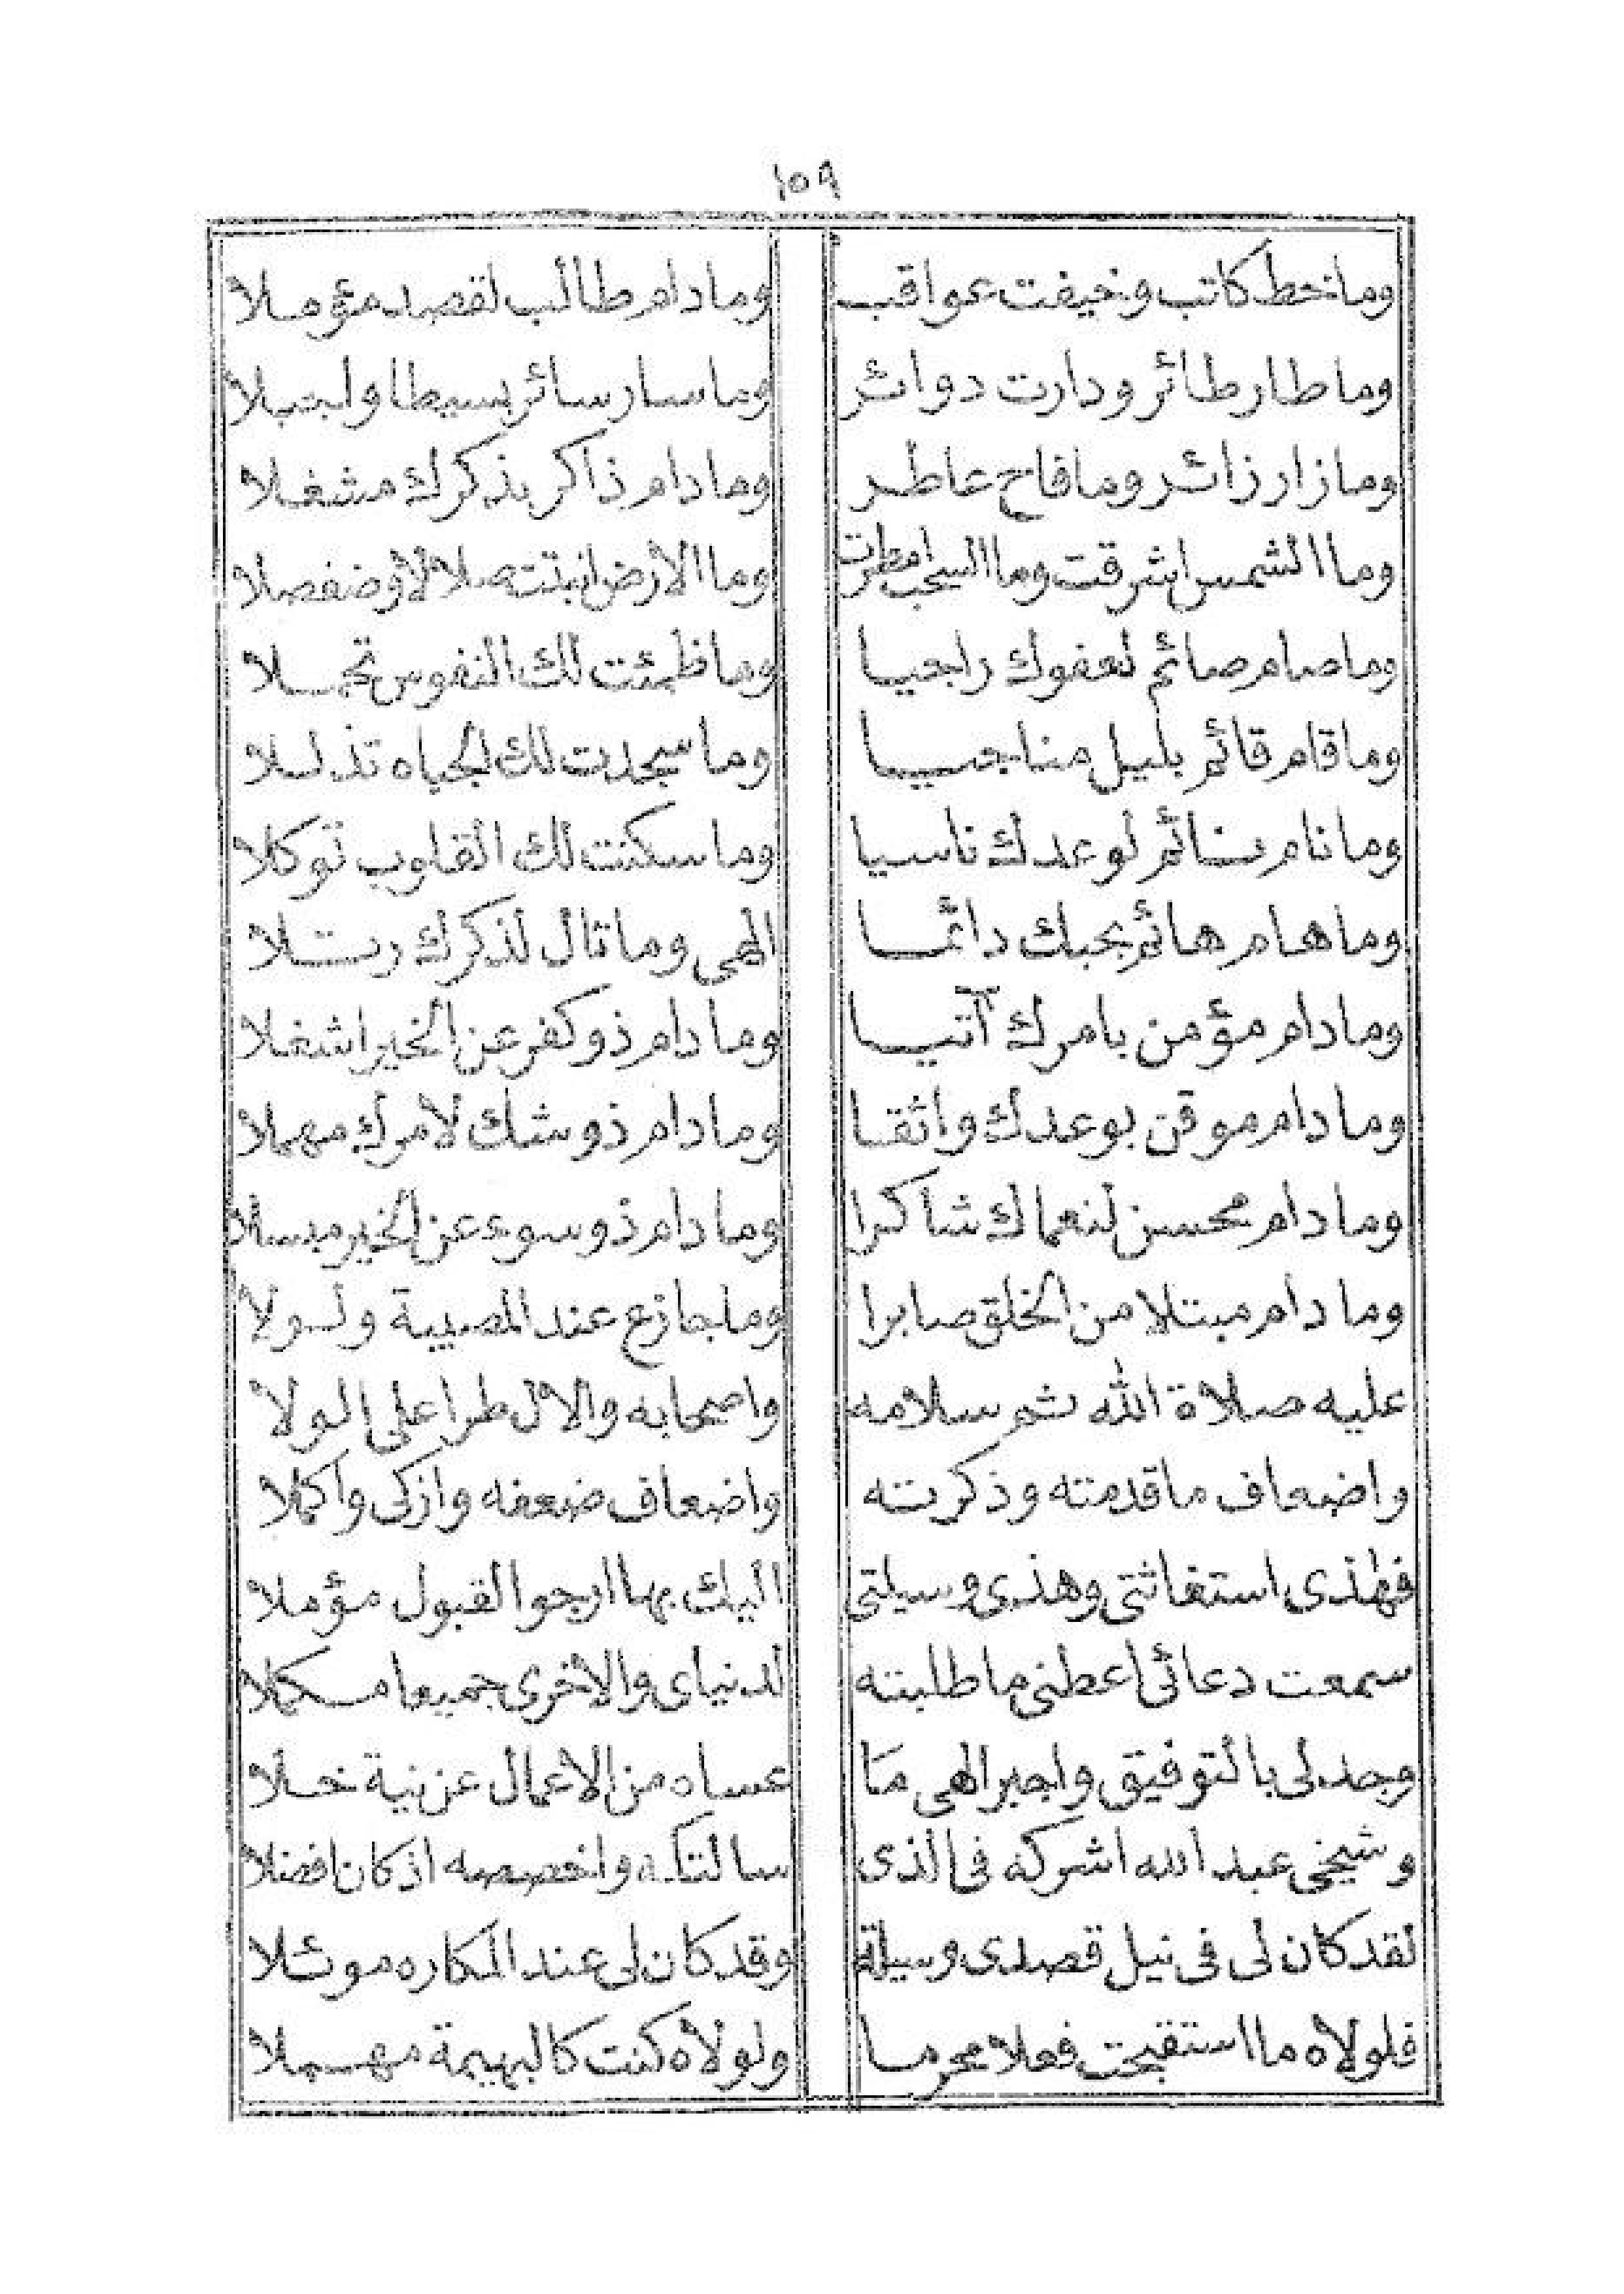 ١٥٩
وما خط كاتب وخيفت عواقب وما دام طالب لقصد مؤملا
وما طار طائر ودارت دوائر وما سار سائر بسيطا واجبلا
وما زار زائر وما فاح عاطر وما دام ذاكر بذكرك مشغلا
وما الشمس اشرقت وما السحب امطرت وما الارض انبتت
وما صام صائم لعفوك راجيا وما ظمئت لك النفوس تحملا
وما قام قائم بليل مناجيا وما سجدت لك الجباه تذللا
وما نام نائم لوعدك ناسيا وما سكنت لك القلوب توكلا
وما هام هائم بحبك دائما الهى وما تال لذكرك رتلا
وما دام مؤمن بامرك آتيا وما دام ذو كفر عن الخير اشغلا
وما دام موقن بوعدك واثقا وما دام ذو شك لأمرك مهملا
وما دام محسن لنعماك شاكرا وما دام ذو سوء عن الخير مبسلا
وما دام مبتلا من الخلق صابرا وما جازع عند المصيبة ولولا
عليه صلاة الله ثم سلامه واصحابه والال طرا على الولا
واضعاف ما قدمته وذكرته واضعاف ضعفه وازكى واكملا
فهذى استغاثتى وهذى وسيلتى اليك بها ارجو القبول مؤملا
سمعت دعائى اعطنى ما طلبته لدنياى والاخرى جميعا مكملا
وجد لى بالتوفيق واجبر الهى مَا عساه من الاعمال عن نية خلا
وشيخى عبد الله اشركه فى الذى سالتكه واخصصه اذ كان افضلا
لقد كان لى فى نيل قصدى وسيلة وقد كان لى عند المكاره موئلا
فلولاه ما استقبحت فعلا محرما ولولاه كنت كالبهيمة مهملا